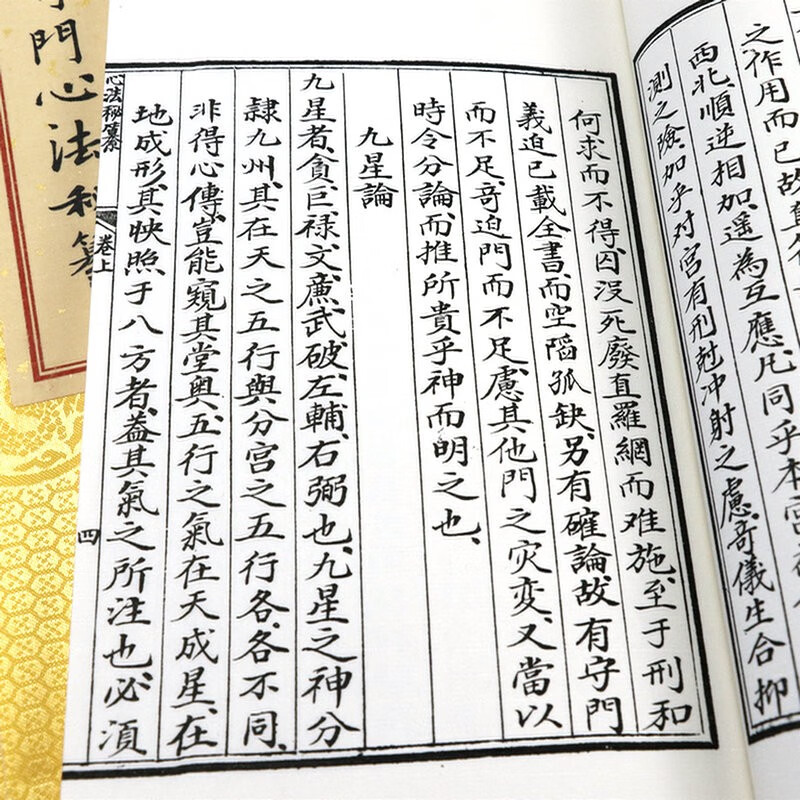 之作用而已故
西北、順逆相加、遥為互應、凡同乎本宮
測之險、加乎对宮有刑尅冲射之慮、奇儀生合抑
何求而不得、因没死廢直羅網而难施、至于刑和
義迫已載全書、而空䧟孤缺、另有確論、故有守門
而不足、奇迫門而不足、慮其他門之灾变、又當以
時令分論、而推所貴乎神而明之也、
九星論
九星者、貪、巨、禄、文、廉、武、破、左輔、右弼也、九星之神分
隸九州、其在天之五行與分宫之五行各、各不同、
非得心傳、豈能窺其堂奥、五行之氣在天成星、在
地成形、其映照于八方者、葢其氣之所注也、必湏
心法秘纂
卷上
四
門心法秘纂